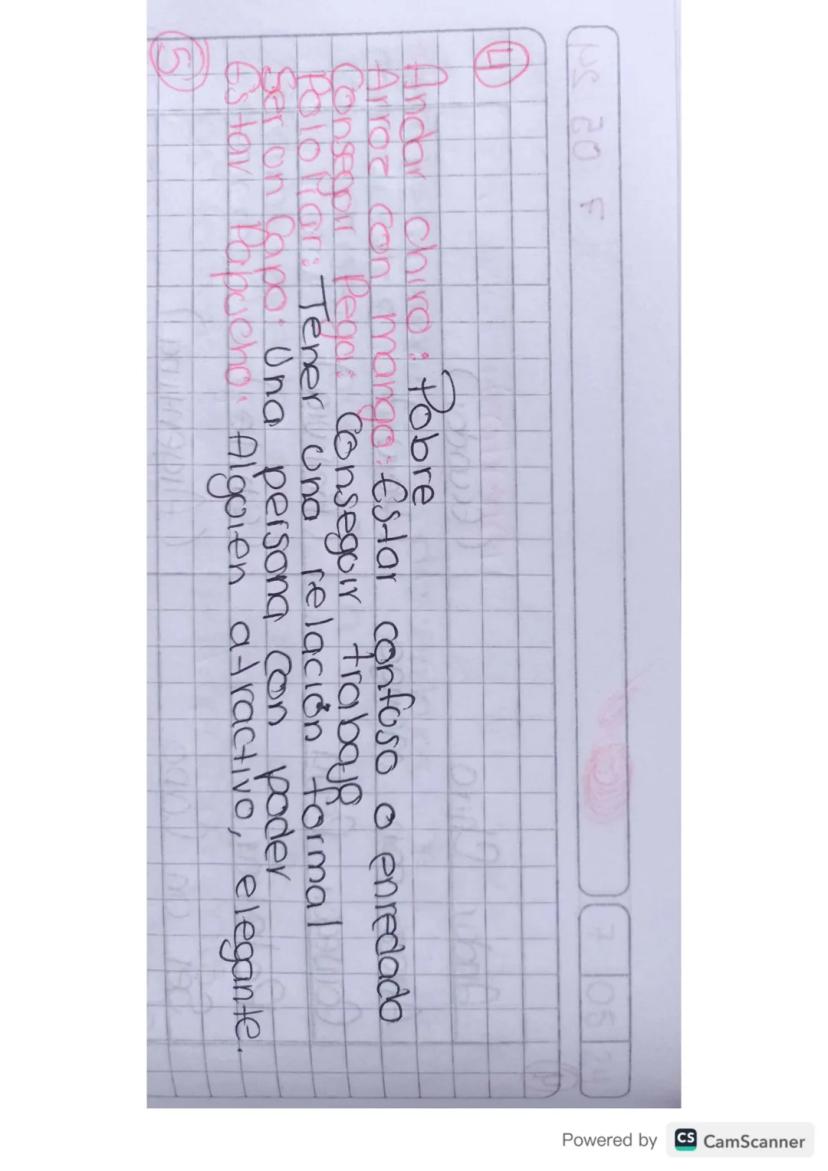 4
Andar chiro: Pobre
Arroz con mango: Estar confuso o enredado
Conseguir Pega: Conseguir trabajo
Pololiar: Tener una relación formal
Ser un Capo: Una persona con poder
Estar Papucho: Alguien atractivo, elegante.
5
Powered by CS CamScanner